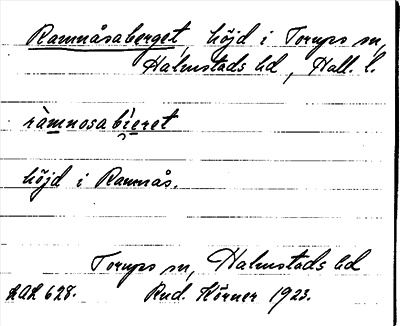 Ramnåsaberget, höjd i Torups sn,
Halmstads hd, Hall. l.
ràmnosabi̯eret
höjd i Ramnås.
Torups sn, Halmstads hd
LAL 628. Rud. Körner 1923.